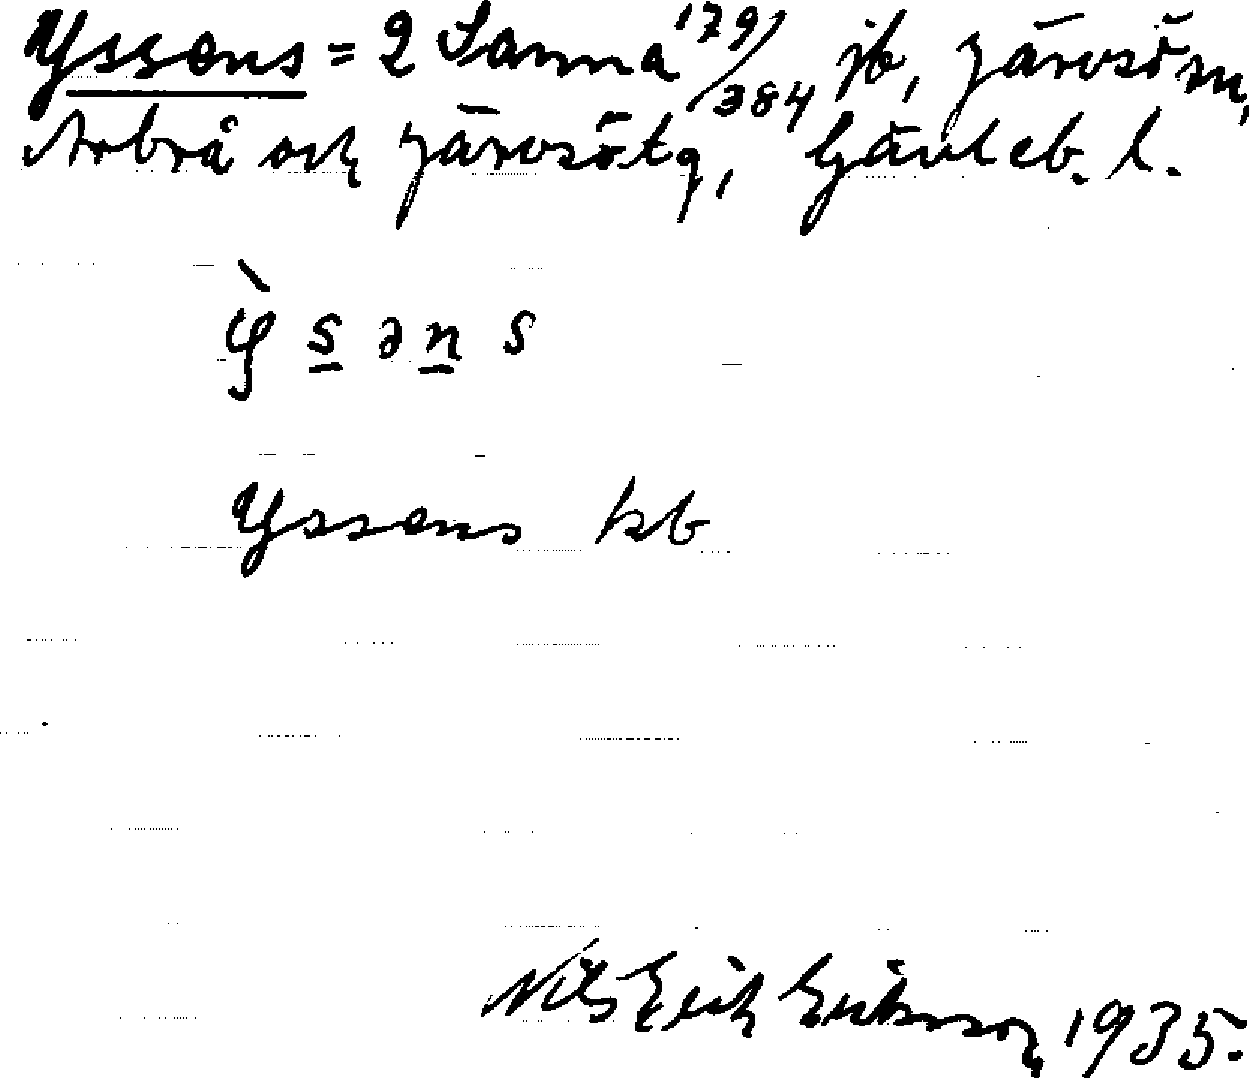 Yssens = 2 Sanna 179/384 jb, Järvsö sn,
Arbrå och Järvsö tg, Gävleb. l.
ỳ̖ s̲ ə n̲ s
Yssens kb
Nils Erik Eriksson 1935.